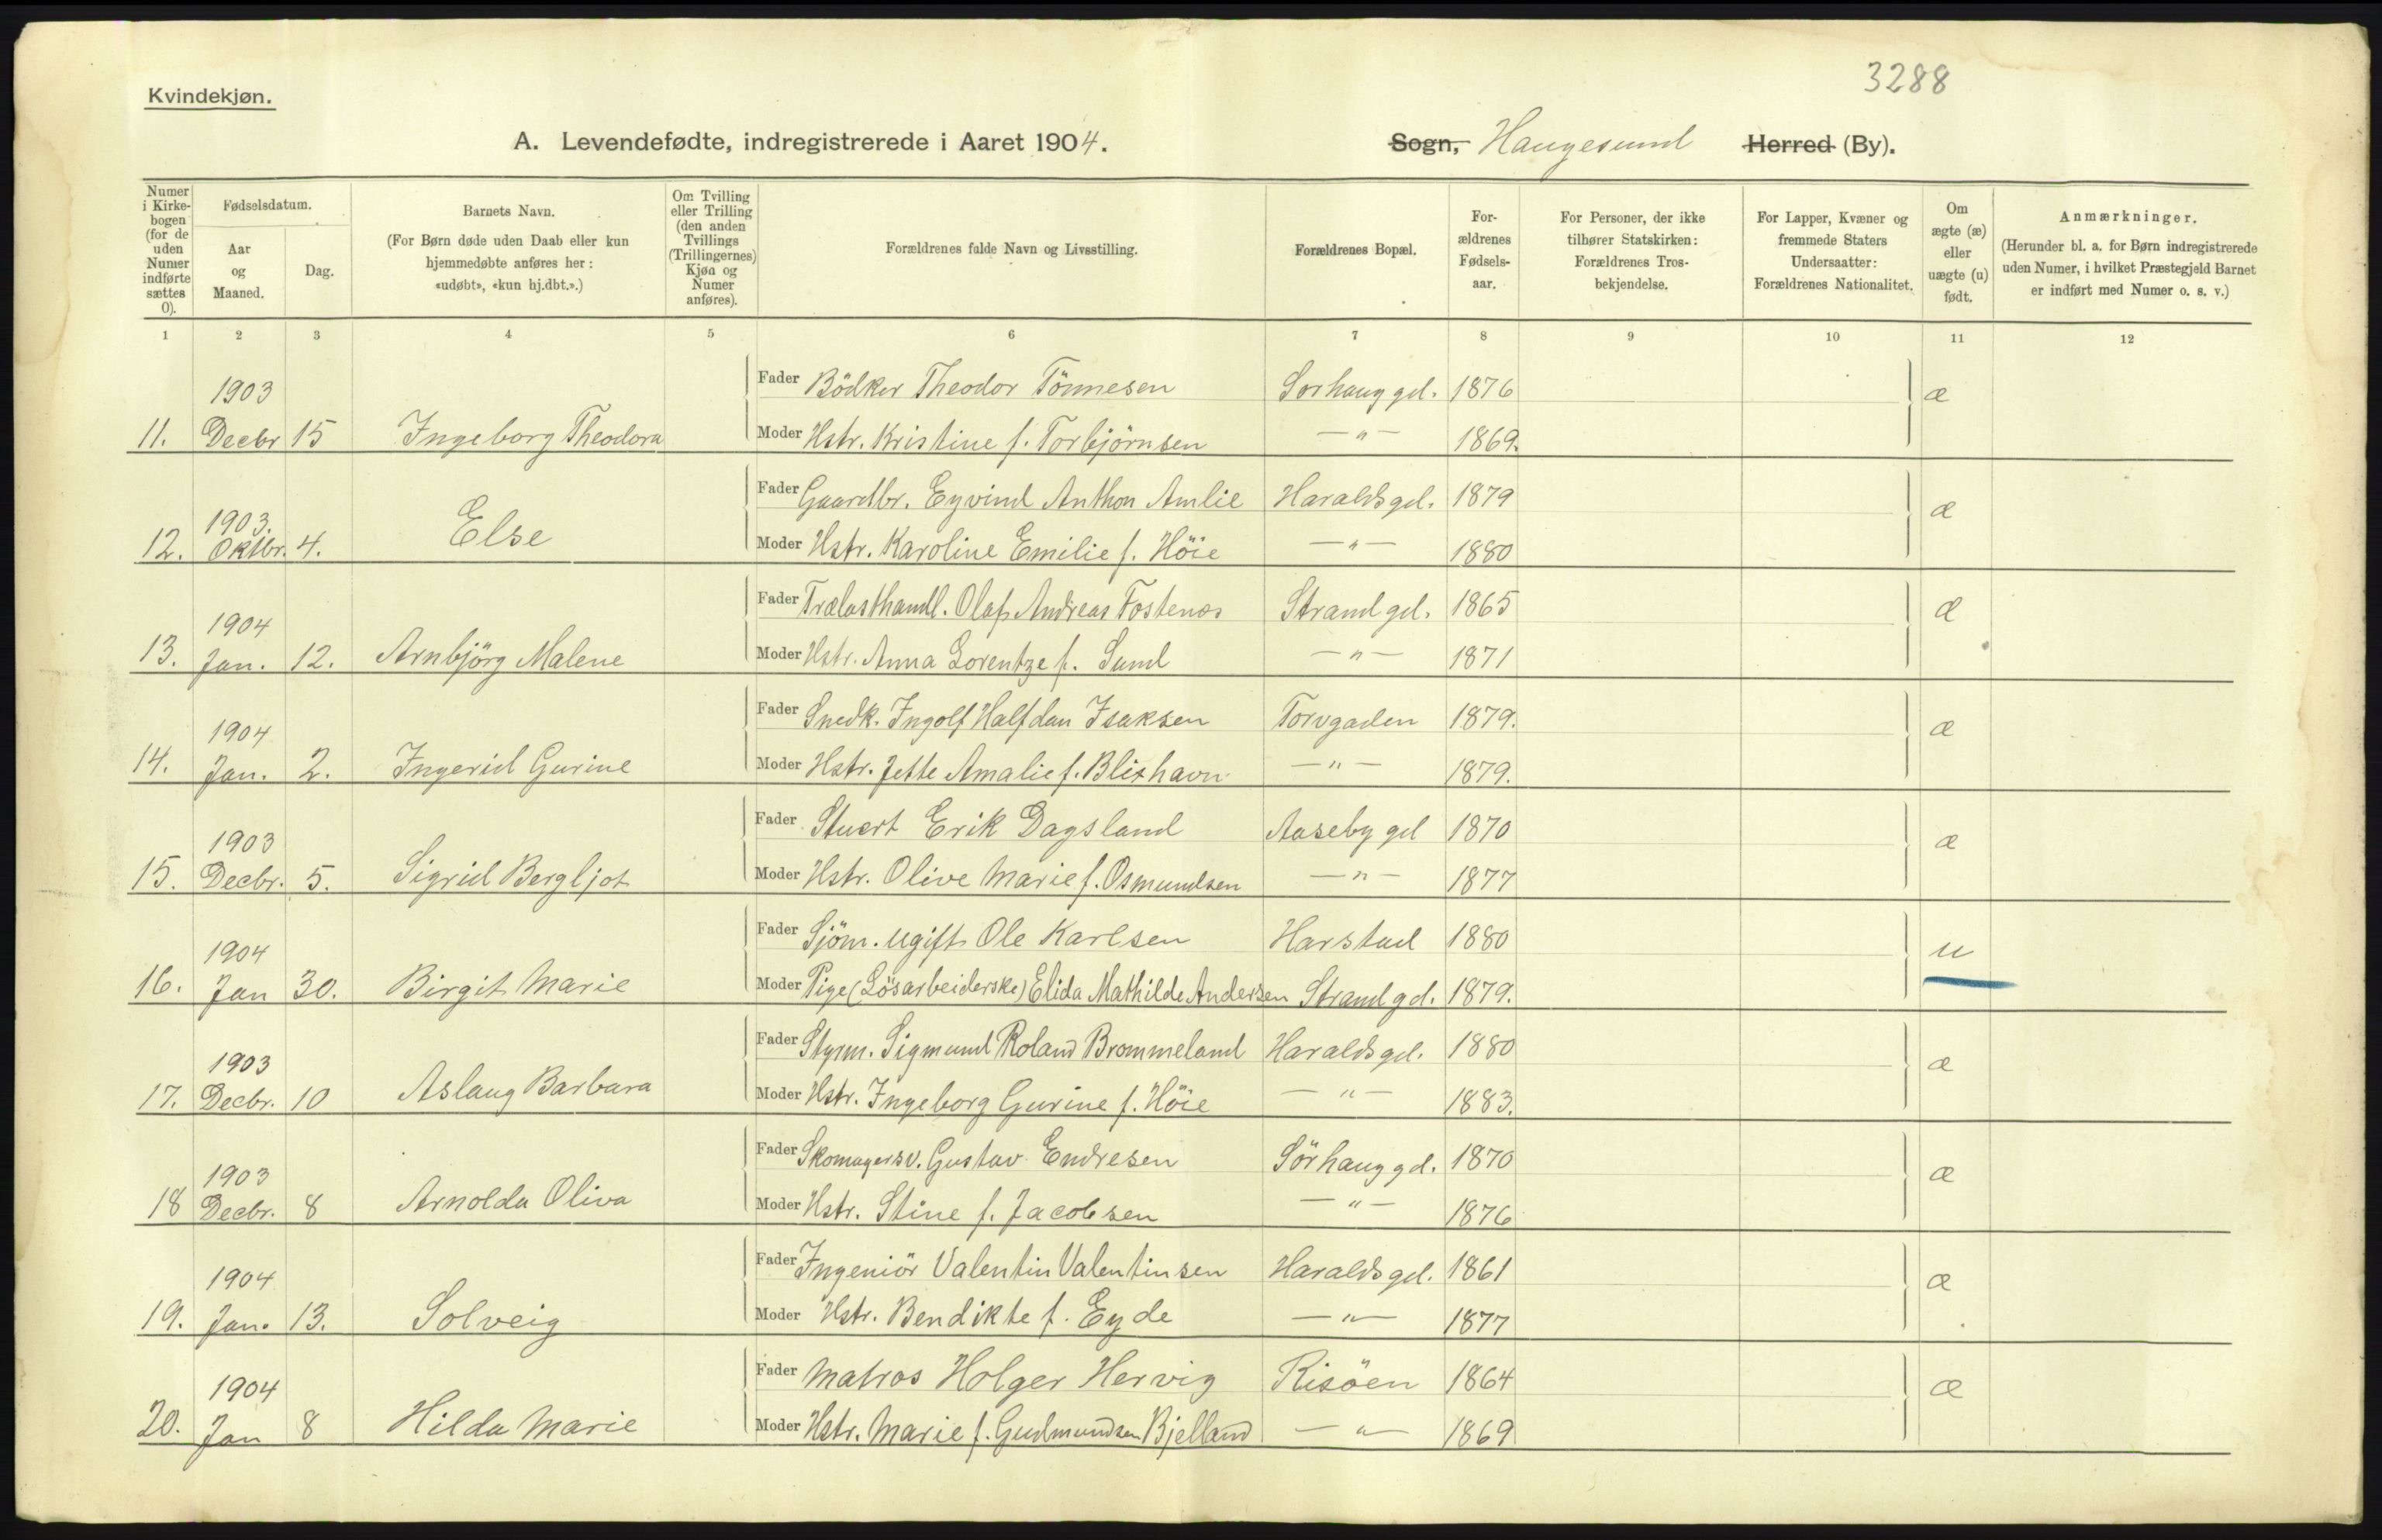 3288
Kvindekjøn.
A. Levendefødte, indregistrerede i Aaret 1904. Sogn, Haugesund Herred (By).
Numer i Kirkebogen (for de uden Numer indførte sættes 0).
Fødselsdatum.
Aar og Maaned.
Dag.
Barnets Navn.
(For Børn døde uden Daab eller kun hjemmedøbte anføres her: «udøbt», «kun hj.dbt.».)
Om Tvilling eller Trilling (den anden Tvillings (Trillingernes) Kjøn og Numer anføres).
Forældrenes fulde Navn og Livsstilling.
Forældrenes Bopæl.
For-ældrenes Fødsels-aar.
For Personer, der ikke tilhører Statskirken: Forældrenes Tros-bekjendelse.
For Lapper, Kvæner og fremmede Staters Undersaatter: Forældrenes Nationalitet.
Om ægte (æ) eller uægte (u) født.
Anmærkninger.
(Herunder bl. a. for Børn indregistrerede uden Numer, i hvilket Præstegjeld Barnet er indført med Numer o. s. v.)
1 2 3 4 5 6 7 8 9 10 11 12
1903 Fader Bödker Theodor Tönnesen Sorhauggd. 1876 æ
11. Decbr 15 Ingeborg Theodora Moder Hstr. Kristine f. Torbjörnsen —"— 1869.
1903. Fader Gaardbr. Eyvind Anthon Amlie Haraldsgd. 1879 æ
12. Oktbr. 4. Else Moder Hstr. Karoline Emilie f. Höie —"— 1880
1904 Fader Trælasthandl. Olaf Andreas Fostenæs Strandgd. 1865 æ
13. Jan. 12. Arnbjörg Malene Moder Hstr. Anna Lorentze f. Sund —"— 1871
1904 Fader Snedk. Ingolf Halfdan Isaksen Torvgaden 1879. æ
14. Jan. 2. Ingerid Gurine Moder Hstr. Jette Amalie f. Blixhavn —"— 1879.
1903 Fader Stuert Erik Dagsland Aasebygd 1870 æ
15. Decbr. 5. Sigrid Bergljot Moder Hstr. Olive Marie f. Osmundsen —"— 1877
1904 Fader Sjöm. ugift Ole Karlsen Harstad 1880 u
16. Jan 30. Birgit Marie Moder Pige (Lösarbeiderske) Elida Mathilde Andersen Strandgd. 1879.
1903 Fader Styrm. Sigmund Roland Brommeland Haraldsgd. 1880 æ
17. Decbr. 10 Aslaug Barbara Moder Hstr. Ingeborg Gurine f. Höie —"— 1883.
1903 Fader Skomagersv. Gustav Endresen Sörhauggd. 1870 æ
18 Decbr. 8 Arnolda Oliva Moder Hstr. Stine f. Jacobsen —"— 1876
1904 Fader Ingeniör Valentin Valentinsen Haraldsgd. 1861 æ
19. Jan. 13. Solveig Moder Hstr. Bendikte f. Eyde —"— 1877
1904 Fader Matros Holger Hervig Risöen 1864 æ
20. Jan 8 Hilda Marie Moder Hstr. Marie f. Gudmundsen Bjelland —"— 1869